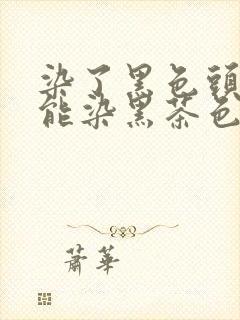 染了黑色頭
能染黑茶色
蕭華